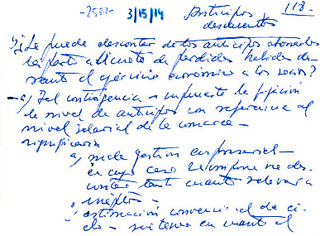 -2587-
3/15/14
Anticipos
descuentos
118.
5) ¿Se puede descontar de los anticipos abonados
la parte alicuota de perdidas habidas du-
rante el ejercicio económico a los socios?
- a) Tal contingencia supuesto la fijación
de nivel de anticipos con referencia al
nivel salarial de la comarca
significaria
a) mala gestion empresarial -
en cuyo caso se impone no des-
contar tanto cuanto relevar a
ineptos -
estimación convencional de ci-
clo - sistema en cuanto al